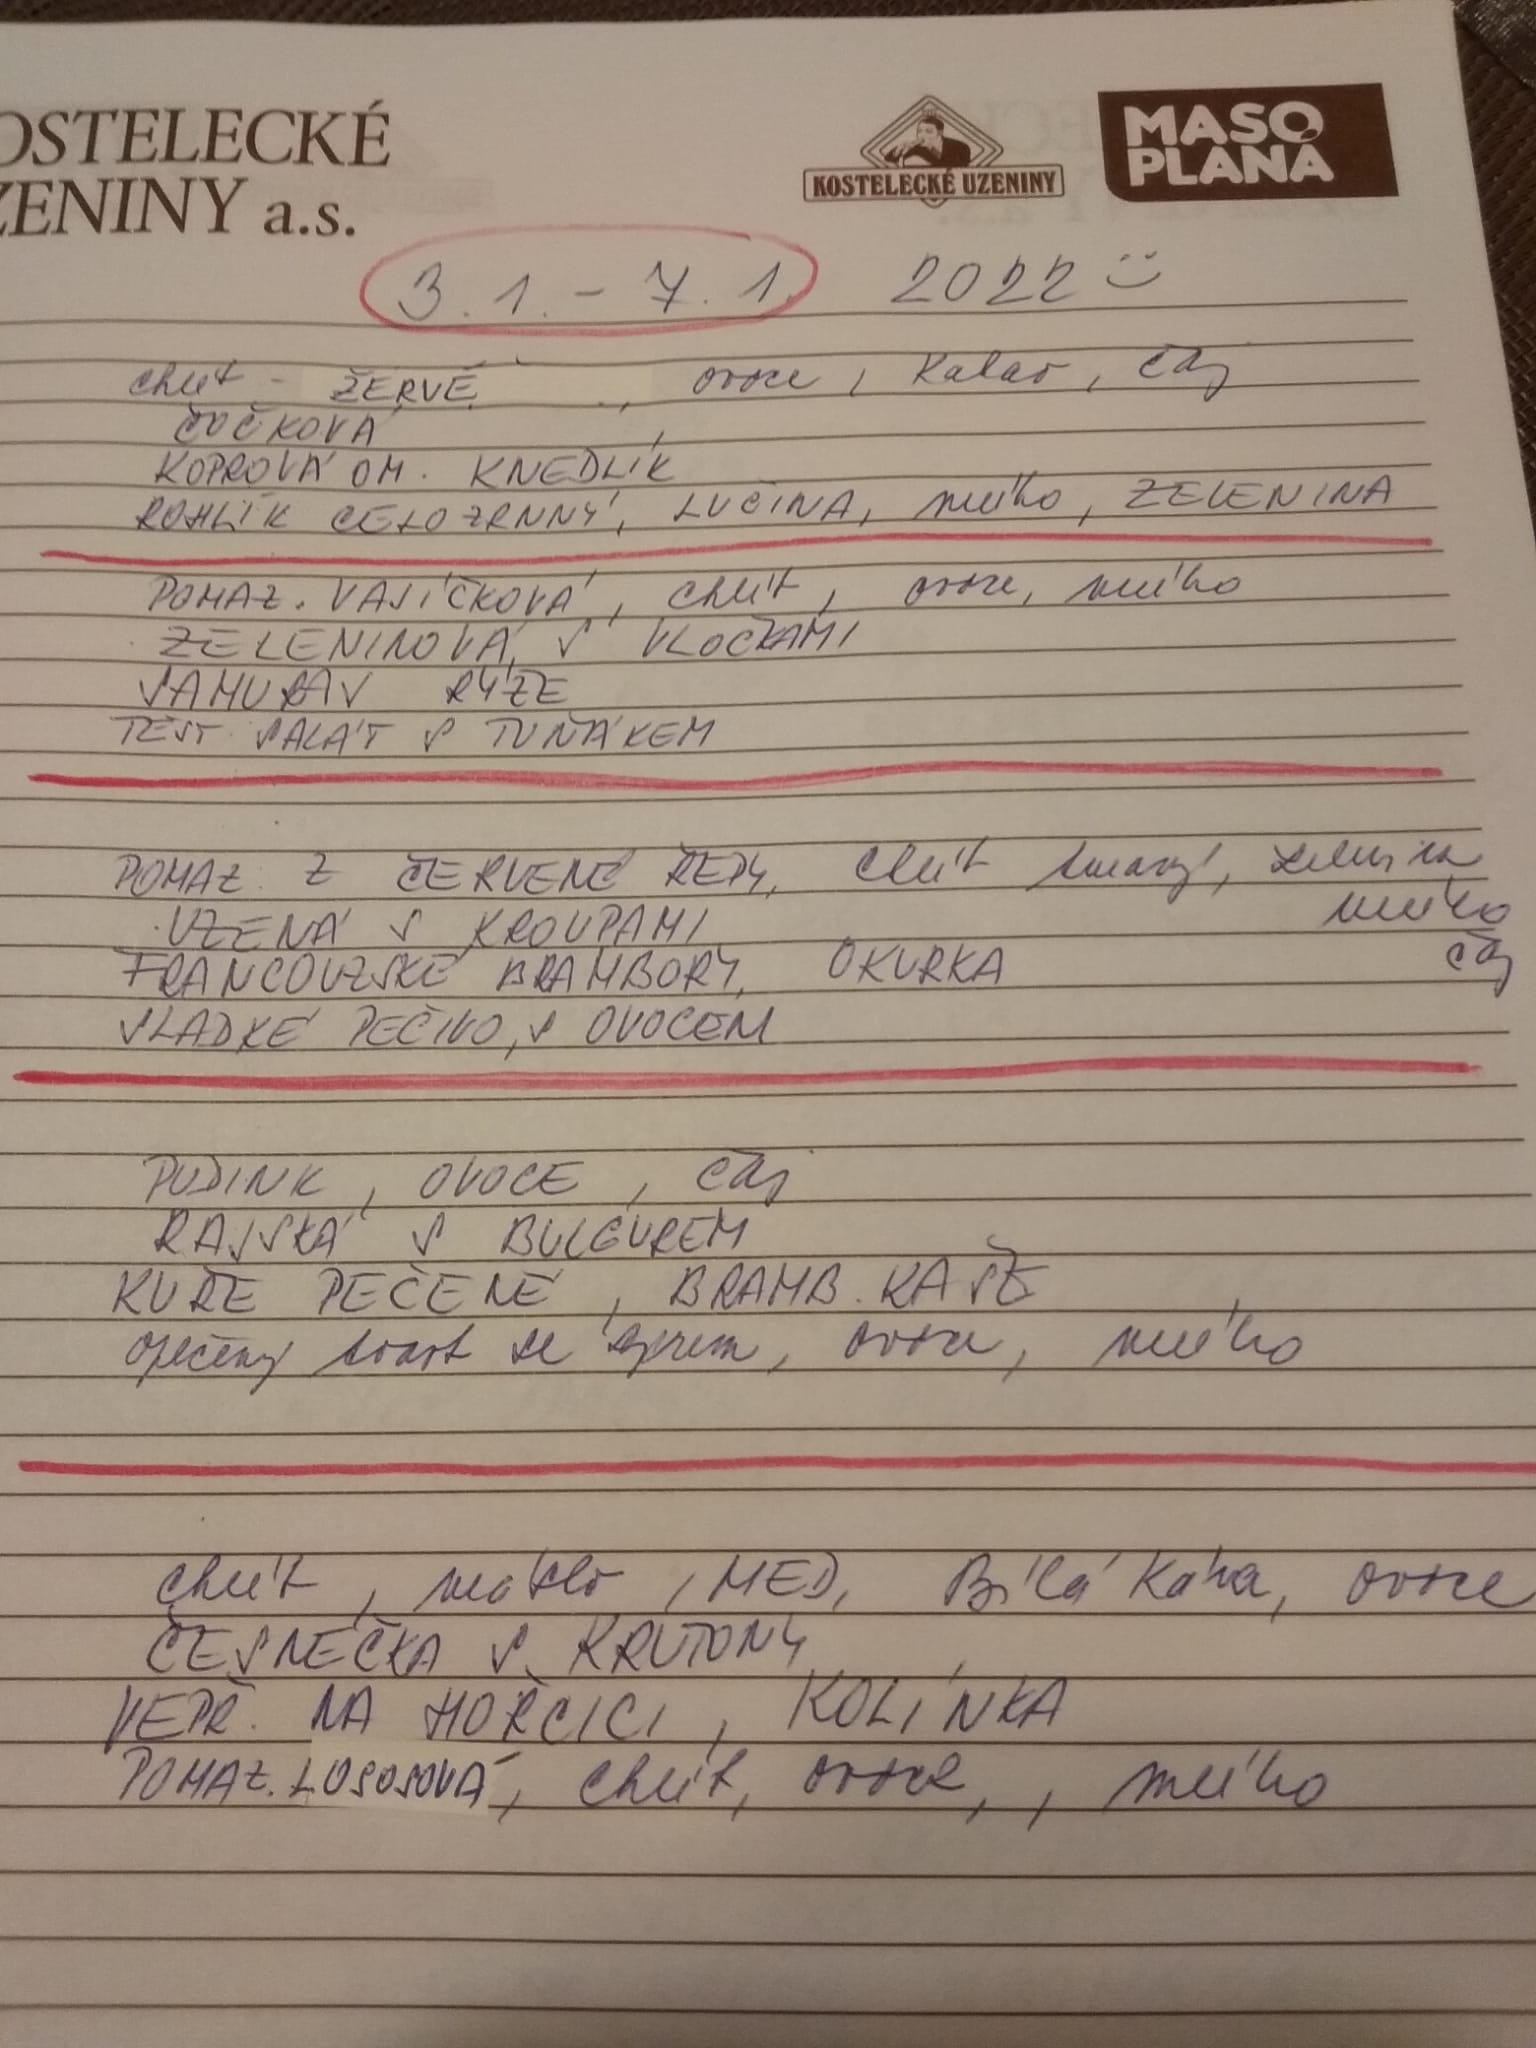 OSTELECKÉ
ZENINY a.s.
KOSTELECKÉ UZENINY
MASO PLANÁ
3.1. - 7.1. 2022
chléb - ŽERVÉ, ovoce, Kakao, čaj
ČOČKOVÁ
KOPROVÁ OM. KNEDLÍK
ROHLÍK CELOZRNNÝ, LUČINA, mléko, ZELENINA
POMAZ. VAJÍČKOVÁ, chléb, ovoce, mléko
ZELENINOVÁ S VLOČKAMI
SAMURAJ RÝŽE
TĚST. SALÁT S TUŇÁKEM
POMAZ. Z ČERVENÉ ŘEPY, chléb tmavý, zelenina
mléko
UZENÁ S KROUPAMI
čaj
FRANCOUZSKÉ BRAMBORY, OKURKA
SLADKÉ PEČIVO, S OVOCEM
PUDINK, OVOCE, čaj
RAJSKÁ S BULGUREM
KUŘE PEČENÉ, BRAMB. KAŠE
opečený toast se sýrem, ovoce, mléko
chléb, máslo, MED, Bílá Káva, ovoce
ČESNEČKA S KRUTONY
VEPŘ. NA HOŘČICI, KOLÍNKA
POMAZ. LOSOSOVÁ, chléb, ovoce, , mléko